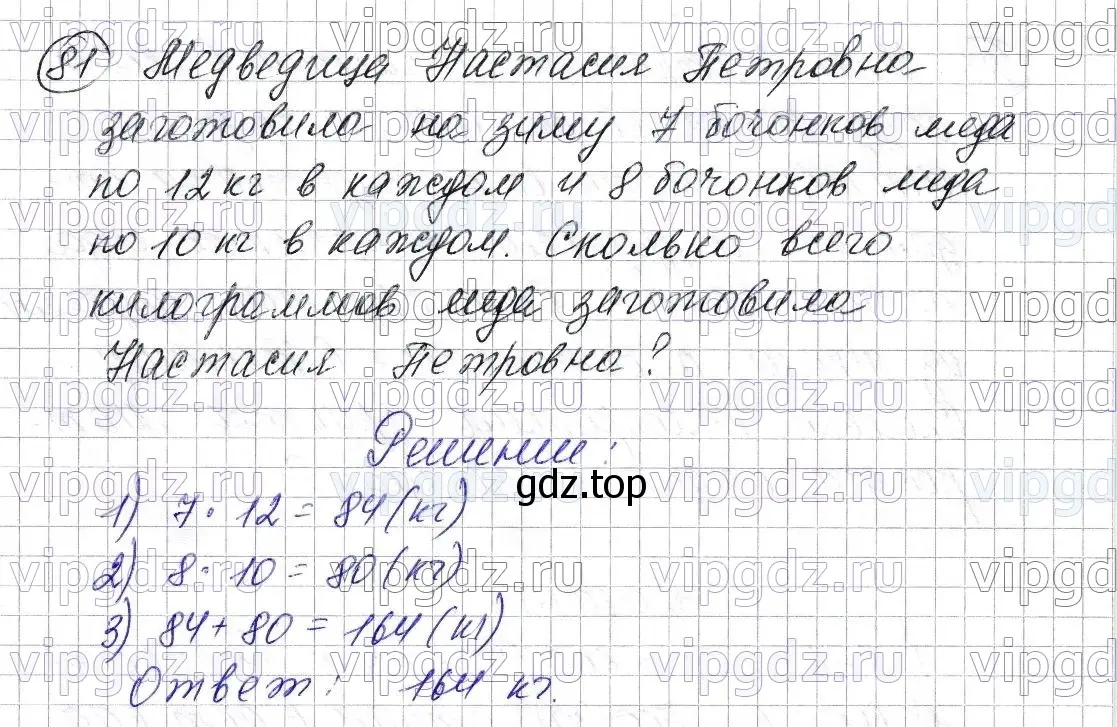 81 Медведица Настасия Петровна
заготовила на зиму 7 бочонков меда
по 12 кг в каждом и 8 бочонков меда
по 10 кг в каждом. Сколько всего
килограммов меда заготовила
Настасия Петровна?
Решении:
gdz.top
1) 7 · 12 = 84 (кг)
2) 8 · 10 = 80 (кг)
3) 84 + 80 = 164 (кг)
Ответ: 164 кг.
vipgdz.ru